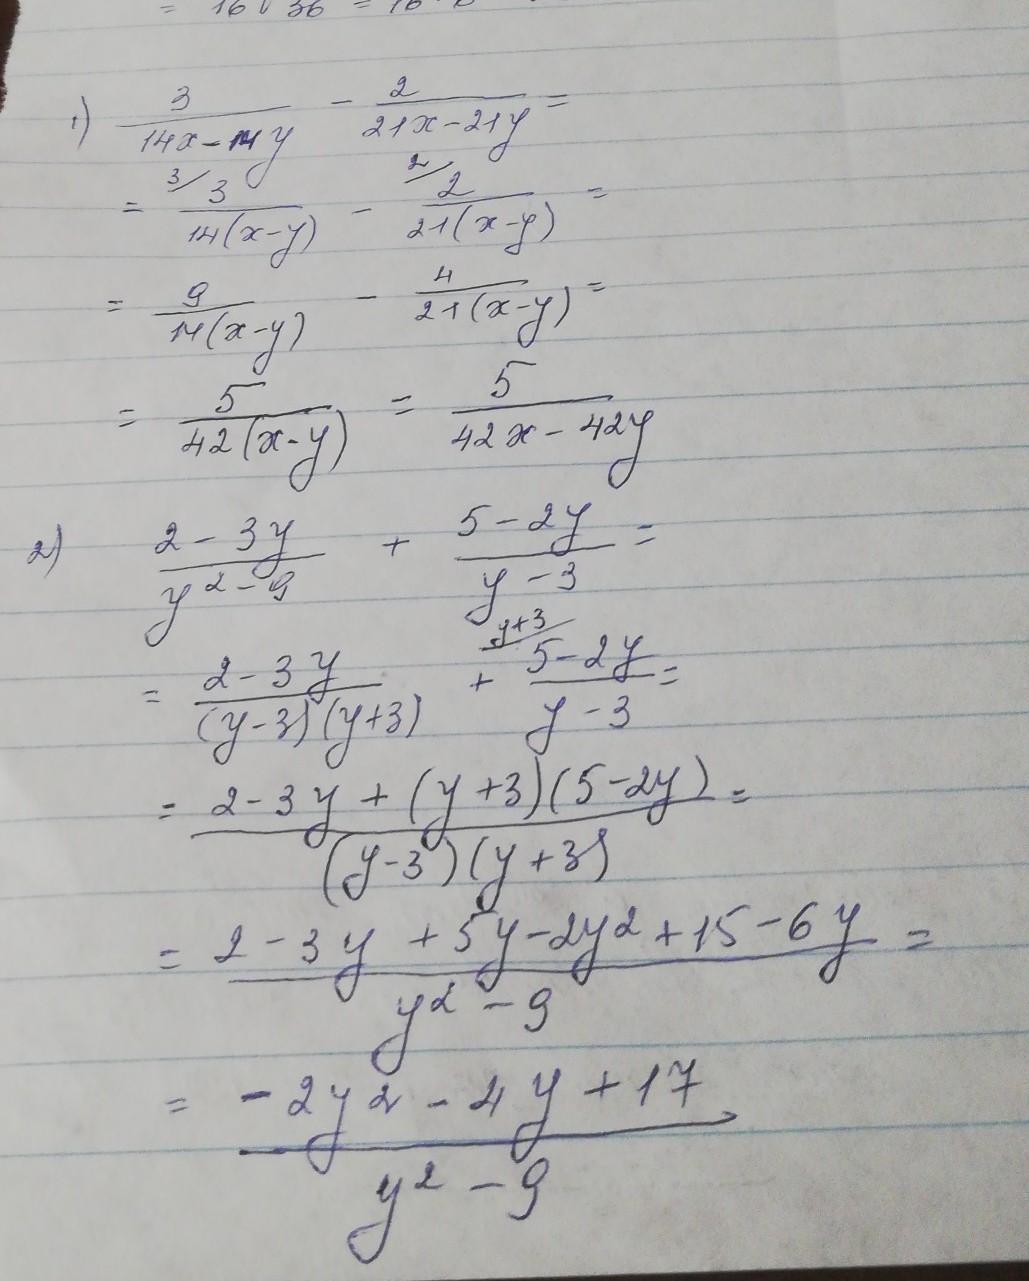 = 16√36 = 16·
1) 3/(14x-14y) - 2/(21x-21y) =
= ³⁄ 3/(14(x-y)) - ²⁄ 2/(21(x-y)) =
= 9/(14(x-y)) - 4/(21(x-y)) =
= 5/(42(x-y)) = 5/(42x-42y)
2) (2-3y)/(y²-9) + (5-2y)/(y-3) =
= (2-3y)/((y-3)(y+3)) + ʸ⁺³⁄ (5-2y)/(y-3) =
= (2-3y+(y+3)(5-2y))/((y-3)(y+3)) =
= (2-3y+5y-2y²+15-6y)/(y²-9) =
= (-2y²-4y+17)/(y²-9)